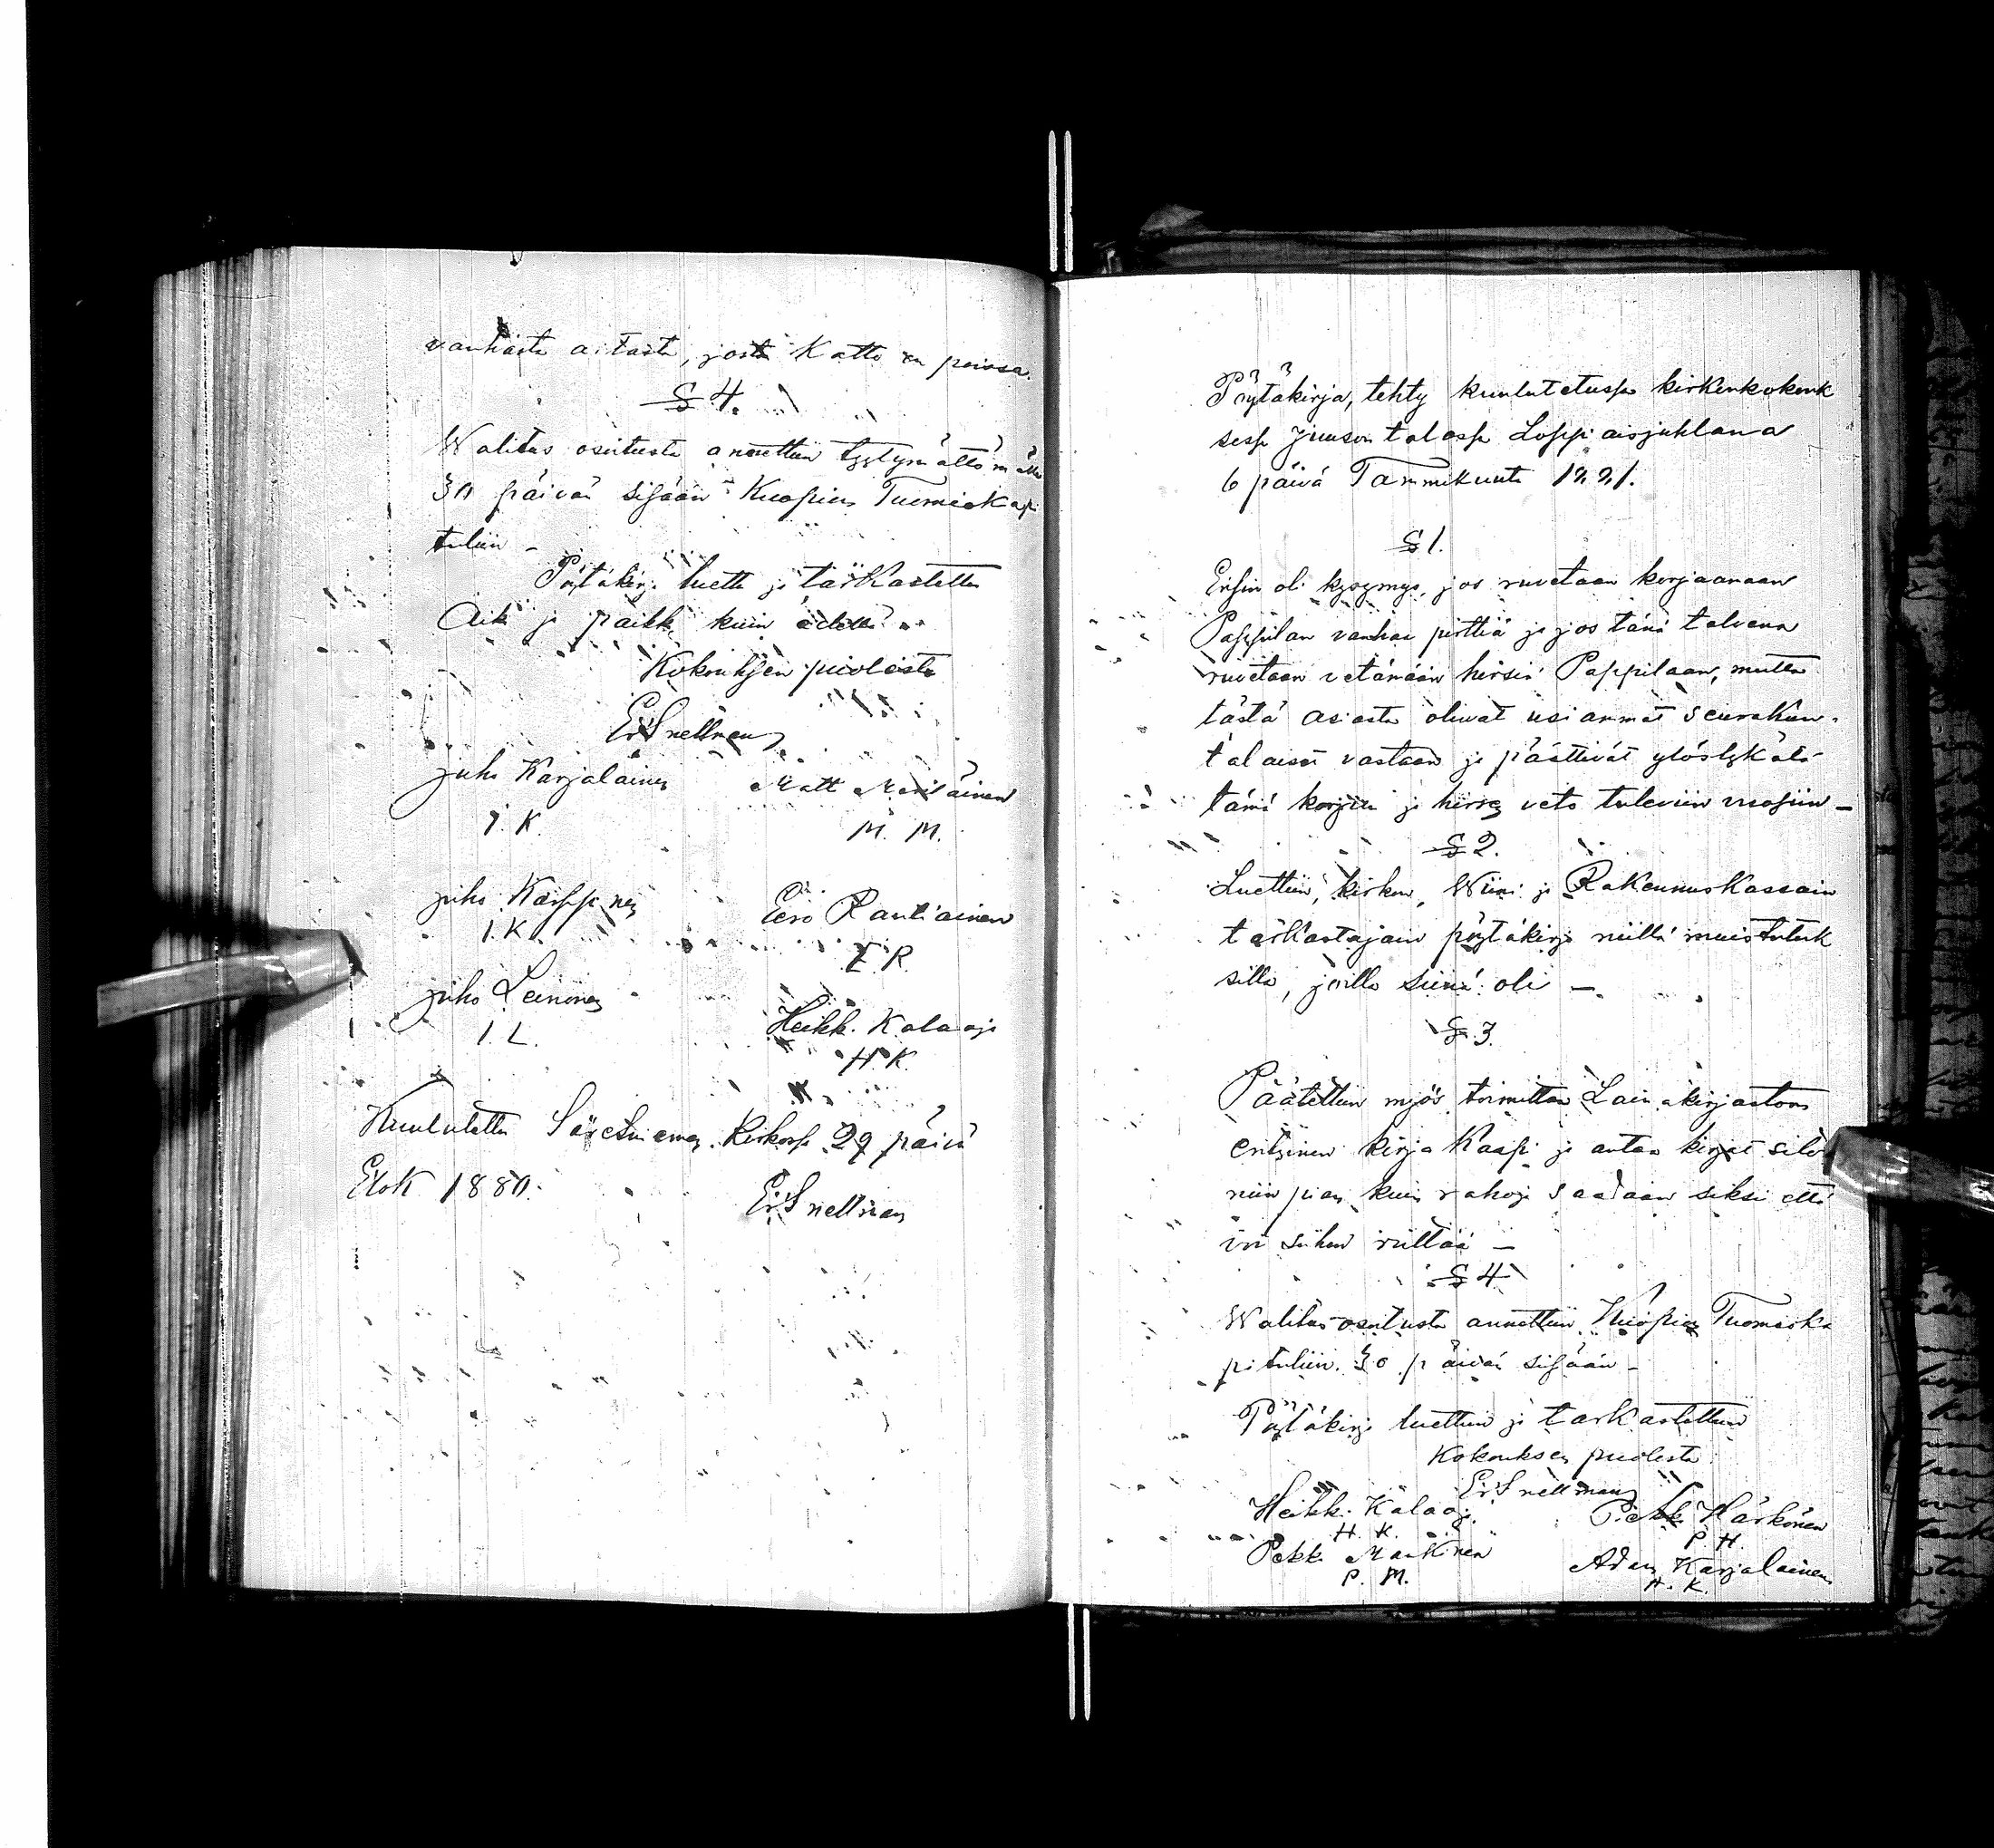 vanhasta aitasta, josta Katto on poissa.
§ 4.
Walitus osoitusta annettiin tyytymättömälle
30 päivän sisään Kuopion Tuomiokap
tuliin –
Pöytäkirja luettu ja tarkastettu
Aika ja paikka kuin edellä
Kokouksen puolesta
Er Snellman
Juho Karjalainen Matti Meriläinen
I. K. M. M.
Juho Karppinen Eero Rautiainen
I. K. E. R.
Juho Leinonen Heikki Kalaoja
I. L. H. K.
Kuulutettu Säresniemen Kirkossa 29 päivä
Elok 1880.
Er Snellman
Pöytäkirja, tehty kuulutetussa kirkonkokouk
sessa Juuson talossa Loppiaisjuhlana
6 päivä Tammikuuta 1881.
§ 1.
Ensin oli kysymys, jos ruvetaan korjaamaan
Pappilan vanhaa pirttiä ja jos tänä talvena
ruvetaan vetämään hirsiä Pappilaan, mutta
tästä asiasta oliwat usiammat seurakun-
talaiset vastaan ja päättivät ylöslykätä
tämä korjuu ja hirren veto tuleviin vuosiin –
§ 2.
Luettiin, kirkon, Wiini ja Rakennus Kassain
tarkastajain pöytäkirja niillä muistutuk
silla, joilla siinä oli –
§ 3.
Päätettiin myös toimittaa Lainakirjastoon
erityinen kirja Kaapi ja antaa kirjat sitoa
niin pian kuin rahoja saadaan siksi että
ne siihen riittää –
§ 4
Walitus osoitusta annettiin Kuopion Tuomioka
pituliin 30 päivän sisään –
Pöytäkirja luettiin ja tarkastettiin
Kokouksen puolesta
Er Snellman
Heikki Kalaoja Pekka Härkönen
H. K. P. H.
Pekka Manninen Adam Karjalainen
P. M. A. K.